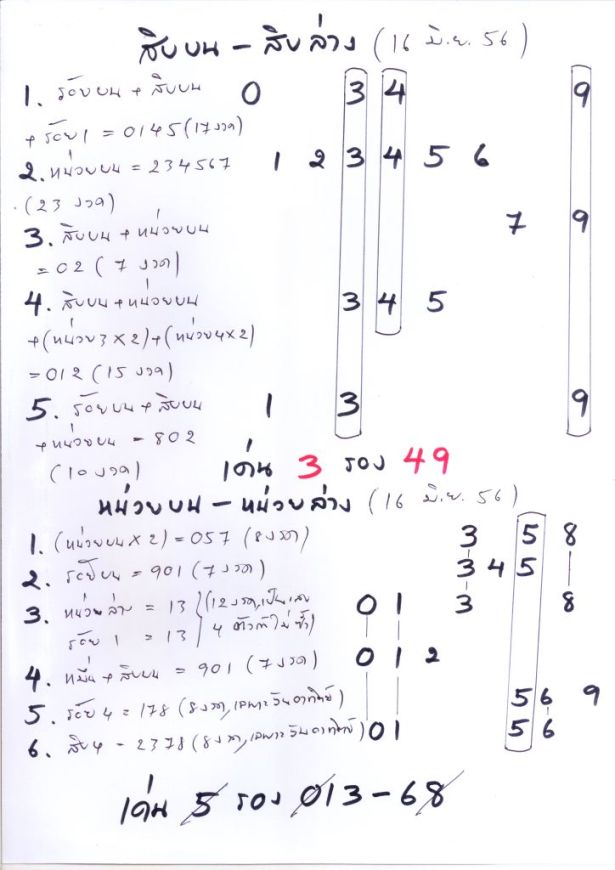 สิบบน - สิบล่าง (16 มิ.ย. 56)
1. ร้อยบน + สิบบน 0 3 4 9
+ ร้อย 1 = 0145 (17 งวด)
2. หน่วยบน = 234567 1 2 3 4 5 6
(23 งวด)
3. สิบบน + หน่วยบน 7 9
= 02 (7 งวด)
4. สิบบน + หน่วยบน 3 4 5
+ (หน่วย3 x 2) + (หน่วย4 x 2)
= 012 (15 งวด)
5. ร้อยบน + สิบบน 1 3 9
+ หน่วยบน = 802
(10 งวด)
เด่น 3 รอง 49
หน่วยบน - หน่วยล่าง (16 มิ.ย. 56)
1. (หน่วยบน x 2) = 057 (8 งวด) 3 5 8
2. ร้อยบน = 901 (7 งวด) 3 4 5
3. หน่วยล่าง = 13 (12 งวด, เป็นเลข 0 1 3 8
ร้อย 1 = 13 4 ตัวที่ไม่ซ้ำ)
4. หมื่น + สิบบน = 901 (7 งวด) 0 1 2
5. ร้อย 4 = 178 (8 งวด, เฉพาะวันอาทิตย์) 5 6 9
6. สิบ 4 - 2378 (8 งวด, เฉพาะวันอาทิตย์) 0 1 5 6
เด่น 5 รอง 013 - 68